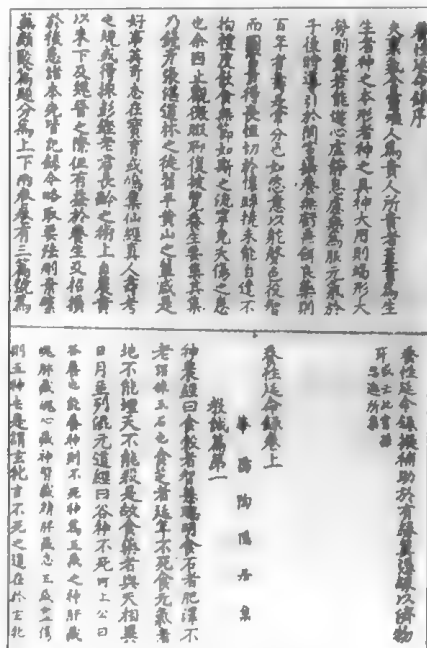 養性延命錄序
夫稟氣含靈唯人為貴人所貴者蓋貴為生
生者神之本形者神之具神大用則竭形大
勞則斃若能遊心虛靜息慮無為服元氣於
子後時導引於閑室攝養無虧兼餌良藥則
百年耆壽是常分也如恣意以耽聲色役智
而圖富貴得喪恒切於懷躁撓未能自遣不
拘禮度飲食無節如斯之流寧免夭傷之患
也余因止觀微暇聊復披覽養生要集其集
乃錢彥張湛道林之徒翟平黃山之輩咸是
好事英奇志在寶育或鳩集仙經真人壽考
之規或得採彭鏗老君長齡之術上自農黃
以來下及魏晉之際但有益於養生及招損
於後患諸本先皆記錄今略取要法刪棄繁
蕪類聚篇題分為上下兩卷卷有三篇號為
養性延命錄擬補助於有緣冀憑緣以濟物
耳或云此書孫
思邈所集
養性延命錄卷上
華陽陶隱居集
教誡篇第一
神農經曰食穀者智慧聰明食石者肥澤不
老謂鍊五石也食芝者延年不死食元氣者
地不能埋天不能殺是故食藥者與天相異
日月並列混元道經曰谷神不死河上公曰
谷養也能養神則不死神為五藏之神肝藏
魂肺藏魄心藏神腎藏精脾藏志五藏盡傷
則五神去是謂玄牝言不死之道在於玄牝